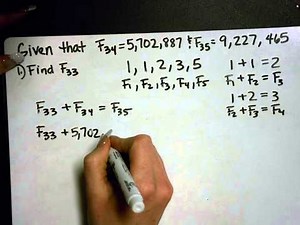 Given that F34 = 5,702,887 & F35 = 9,227,465
1) Find F33
1, 1, 2, 3, 5
F1, F2, F3, F4, F5
1 + 1 = 2
F1 + F2 = F3
1 + 2 = 3
F2 + F3 = F4
F33 + F34 = F35
F33 + 5,702